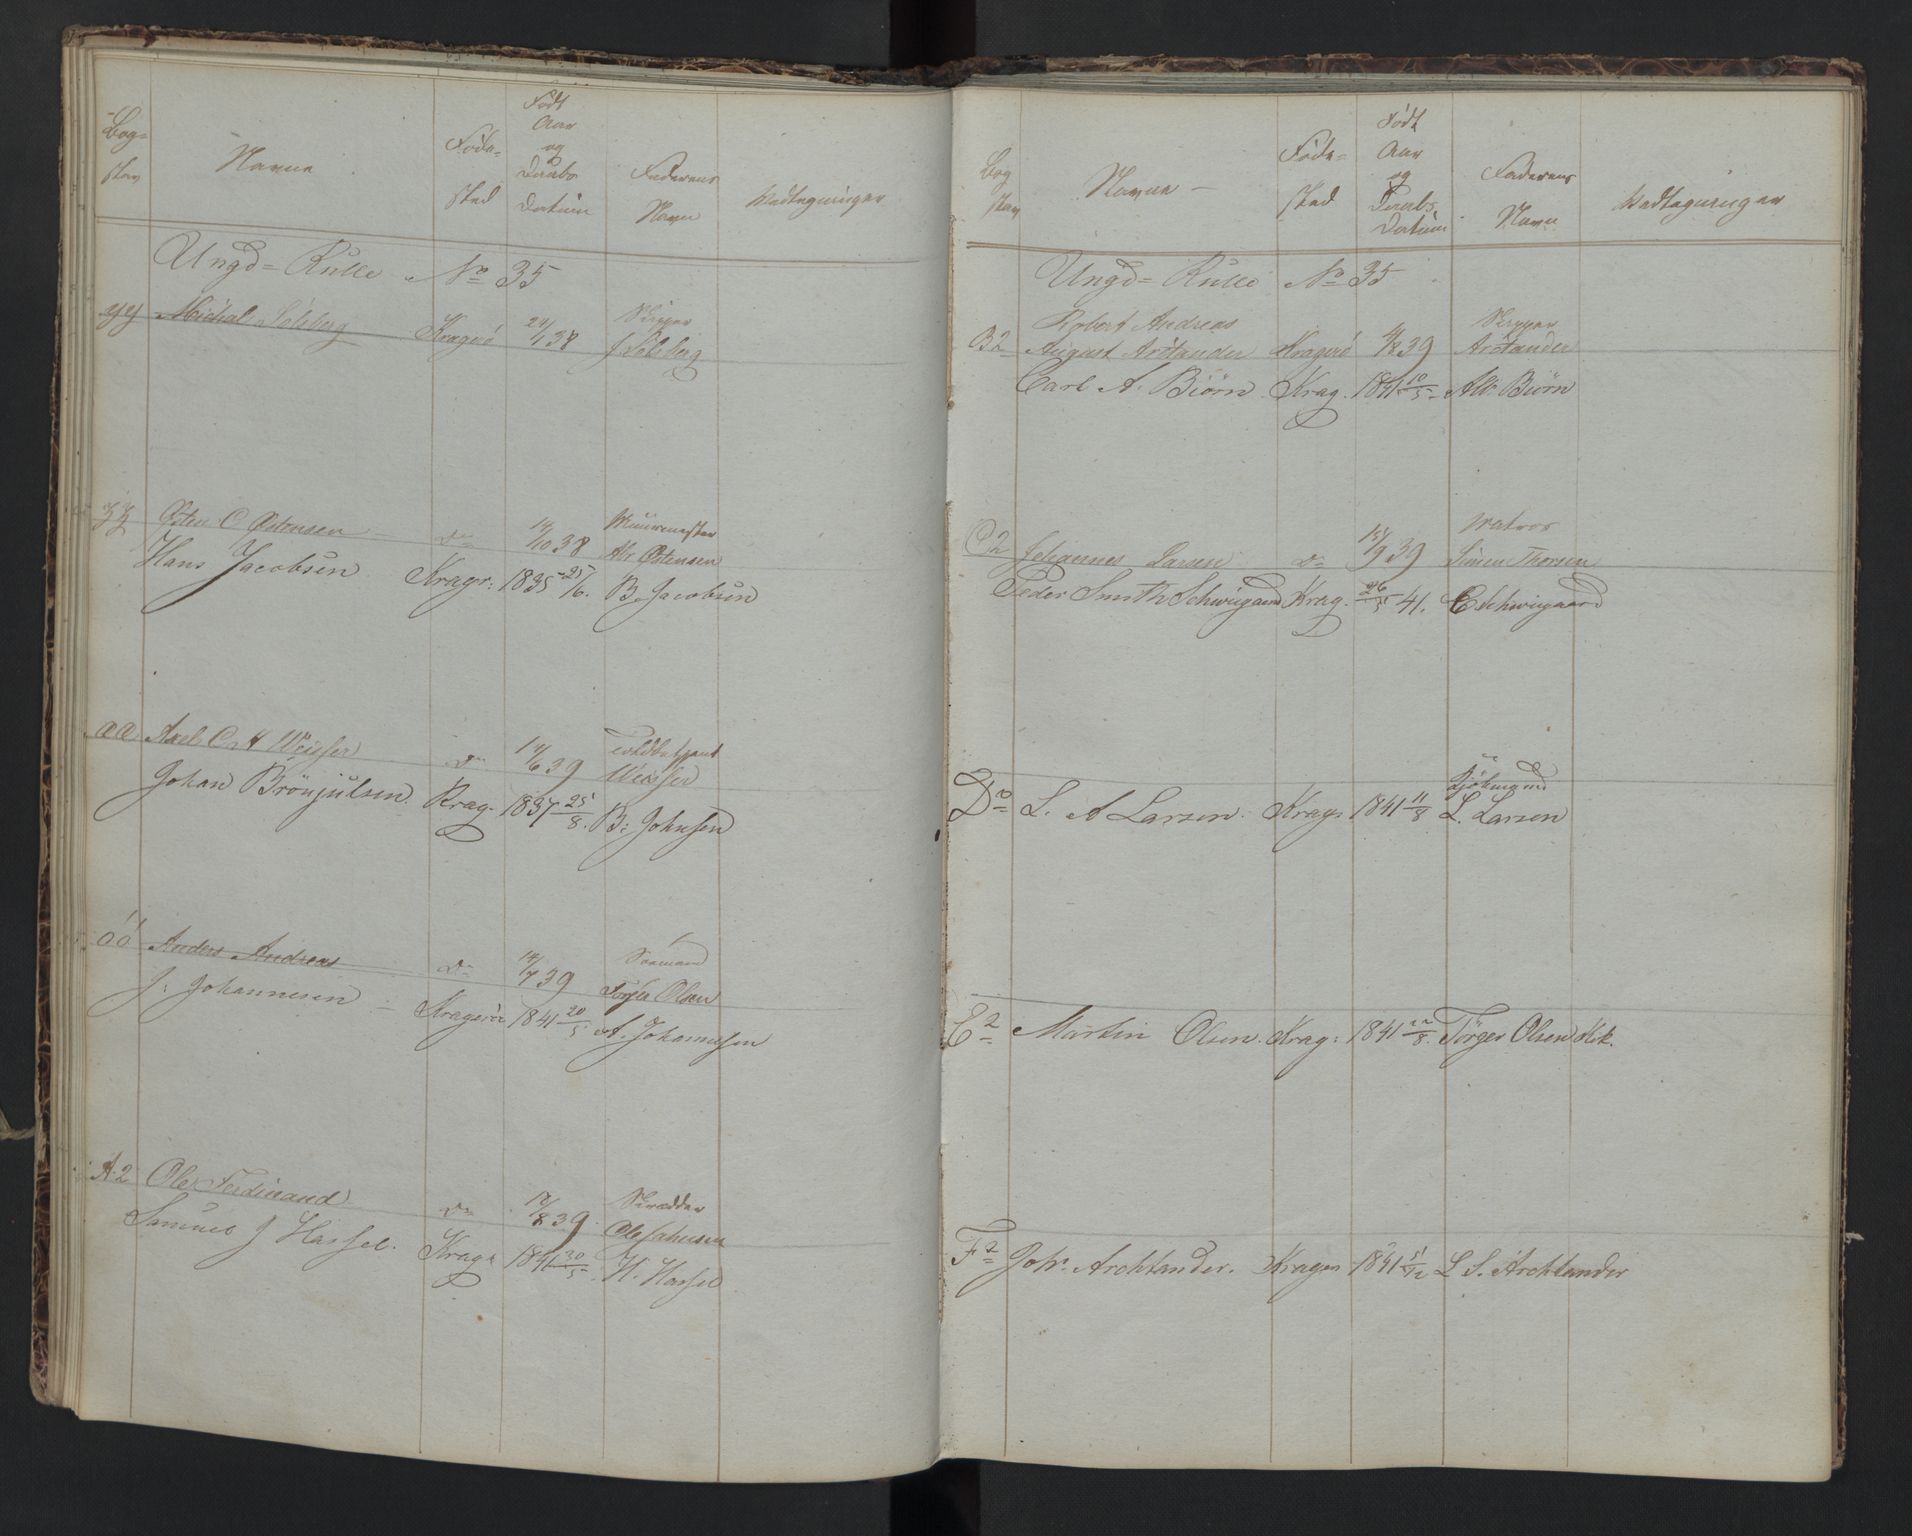 Bog=
stav
Navne
Føde=
sted
Födt
Aar
og
Daabs
Datum
Faderens
Navn
Paategninger
Ungd= Rulle No 35
yy Michal Solberg Kragerö 38 Skipper
J. Solberg
zz Østen C Østensen do 14/10 38 Muurmester
Østensen
Hans Jacobsen Kragr: 1835 25/6. B. Jacobsen
aa Axel C Weisser do 14/6 39 Toldbetjent
Weisser
Johan Brönjulsen Krag. 1837 25/8. B: Johnsen
öö Anders Andreas do 14/7 39 Søemand
Törger Olsen
J: Johannesen Kragerö 1841 20/5 A. Johannesen
A2 Ole Ferdinand do 17/8 39 Skrædder
Ole Johnsen
Samuel J Hassel. Krag. 1841 30/5 H. Hassel
Bog
stav
Navne
Føde=
sted
Födt
Aar
og
Daabs
Datum
Faderens
Navn
Paategninger
Ungd= Rulle No 35
B2 Robert Andreas
August Arötander Kragerö 4/8 39 Skipper
Arötander
Carl A. Biörn Krag. 1841 10/5 Alb: Biörn
C2 Johannes Larsen do 15/9 39 Matros
Simen Thorsen
Peder Smith Schwiegaard Krag. 26/5 41. C Schwiegaard
D2 L. A Larsen. Krag. 1841 11/8 Sjöhmand
L. Larsen
E2 Martin Olsen. Krag: 1841 22/8. Törger Olsen
F2 Johs. Archtander. Krager 1841 L. S. Archtander